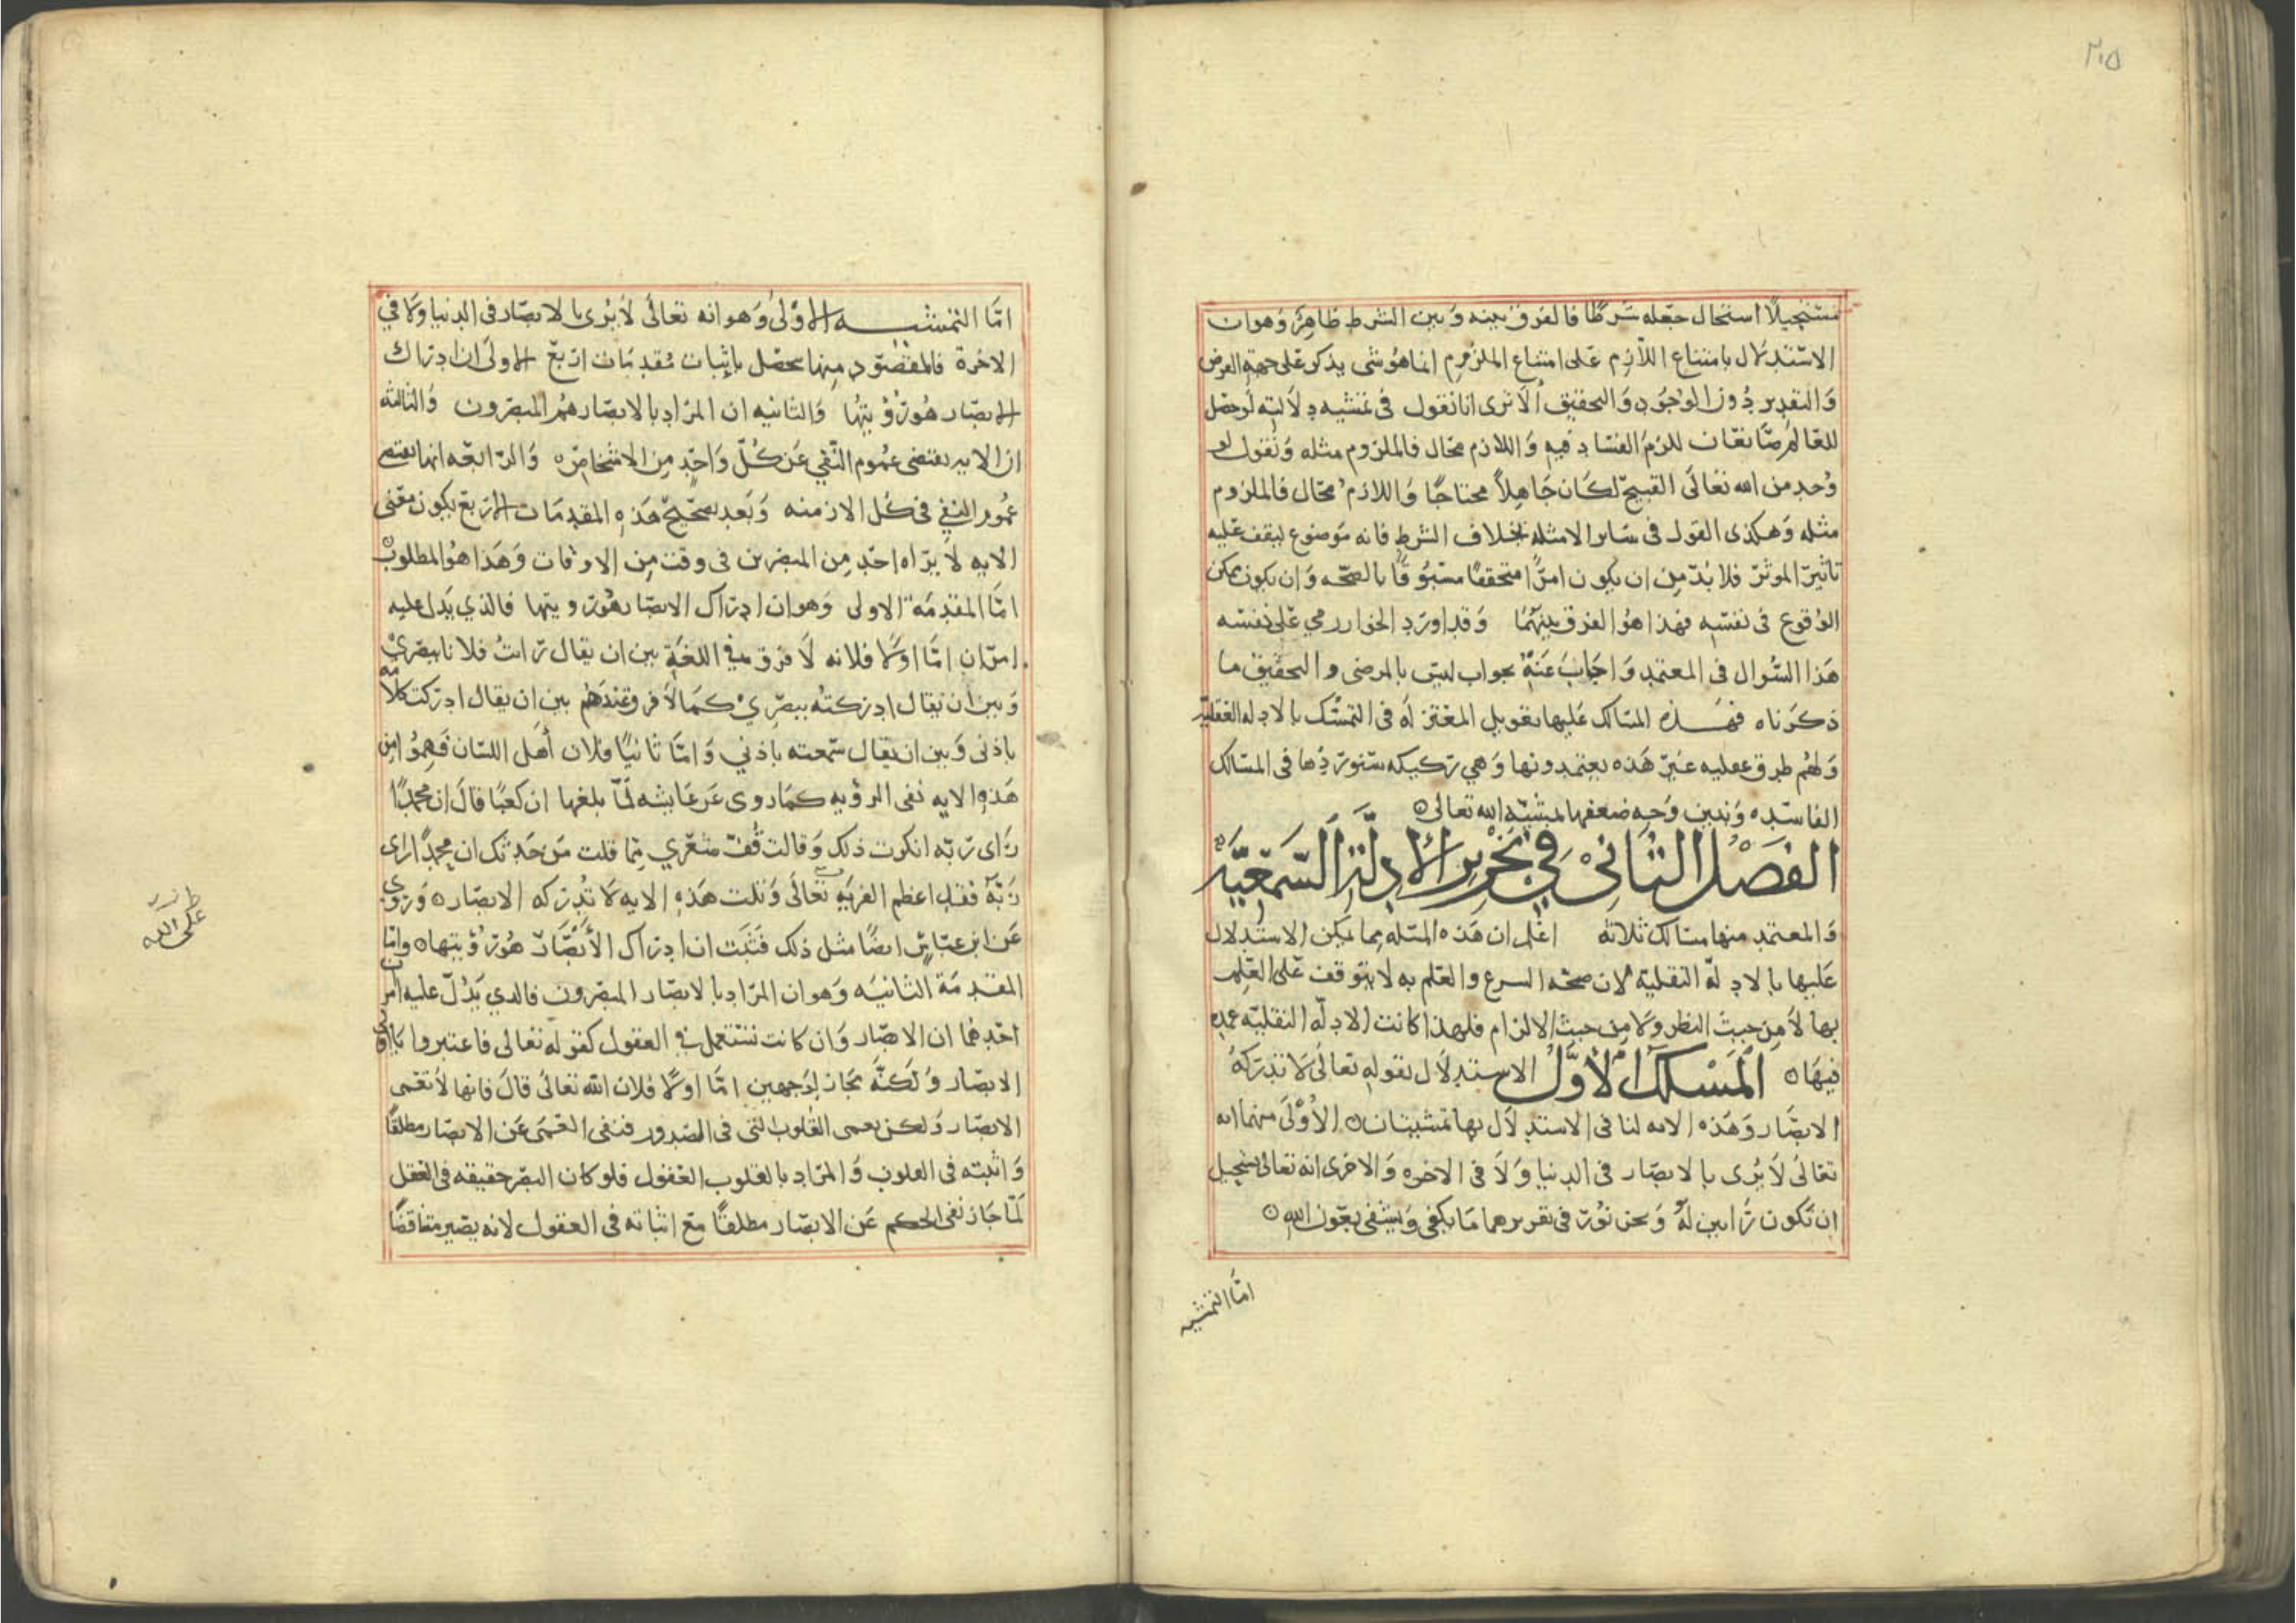 ٢١٥
مستحيلاً استحال جعله شرطًا فالفرق بينه وبين الشرط ظاهر وهو ان
الاستدلال بامتناع اللازم على امتناع الملزوم انما هو شى يذكر على جهة الفرض
والتقدير دون الوجود والتحقيق الا ترى انا نقول فى تمشيه دلالته لو حصل
للعالم صانعان للزم الفساد فيه واللازم محال فالملزوم مثله ونقول لو
وجد من الله تعالى القبيح لكان جاهلاً محتاجًا واللازم محال فالملزوم
مثله وهكذى القول فى ساير الامثله بخلاف الشرط فانه موضوع ليقف عليه
تاثير الموثر فلا بد من ان يكون امرًا متحققًا مسبوقًا بالصحه وان يكون ممكن
الوقوع فى نفسه فهذا هو الفرق بينهما وقد اورد الخوارزمي على نفسه
هذا السوال فى المعتمد واجاب عنه بجواب ليس بالمرضى والتحقيق ما
ذكرناه فهذه المسالك عليها تعويل المعتزله فى التمسك بالادله العقليه
ولهم طرق عقليه غير هذه يعتمدونها وهي ركيكه سنوردها فى المسالك
الفاسده ونبين وجه ضعفها بمشيه الله تعالى
الفصل الثانى في تحرير الادلة السمعيه
والمعتمد منها مسالك ثلاثه اعلم ان هذه المسله مما يمكن الاستدلال
عليها بالادلة النقلية لان صحه السرع والعلم به لا يتوقف على العلم
بها لا من حيث النظر ولا من حيث الالزام فلهذا كانت الادله النقليه عمده
فيها المسلك الاول الاستدلال بقوله تعالى لا تدركه
الابصار وهذه الايه لنا فى الاستدلال بها تمشيتان الاولى منهما انه
تعالى لا يرى بالابصار فى الدنيا ولا فى الاخره والاخرى انه تعالى يستحيل
ان تكون رايين له ونحن نورد فى تقريرهما ما يكفى ويشفى بعون الله
اما التمشيه
اما التمشيه الاولى وهو انه تعالى لا يرى بالابصار فى الدنيا ولا في
الاخرة فالمقصود منها يحصل باثبات مقدمات اربع الاولى ان ادراك
الابصار هو رؤيتها والثانيه ان المراد بالابصار هم المبصرون والثالثه
ان الايه يقتضى عموم النفي عن كل واحد من الاشخاص والرابعه انها يقتضى
عموم النفي فى كل الازمنه وبعد تصحيح هذه المقدمات الاربع يكون معنى
الايه لا يراه احد من المبصرين فى وقت من الاوقات وهذا هو المطلوب
اما المقدمة الاولى وهو ان ادراك الابصار هو رويتها فالذي يدل عليه
امران اما اولا فلانه لا فرق في اللغة بين ان يقال رايت فلانا ببصري
وبين ان يقال ادركته ببصري كما لا فرق عندهم بين ان يقال ادركت كلامه
باذنى وبين ان يقال سمعته باذني واما ثانيًا فلان أهل اللسان فهموا من
هذه الايه نفى الرؤيه كما روى عن عايشه لما بلغها ان كعبًا قال ان محمدًا
راى ربه انكرت ذلك وقالت قف شعري مما قلت من حدثك ان محمدًا راى
ربه فقد اعظم الفريه تعالى وتلت هذه الايه لا تدركه الابصار وروى
عن ابن عباس ايضًا مثل ذلك فثبت ان ادراك الأبصار هو رؤيتها واما
على الله
المقدمة الثانيه وهو ان المراد بالابصار المبصرون فالدي يدل عليه امران
احدهما ان الابصار وان كانت تستعمل في العقول كقوله تعالى فاعتبروا يا اولى
الابصار ولكنه مجاز لوجهين اما اولا فلان الله تعالى قال فانها لا تعمى
الابصار ولكن تعمى القلوب التى فى الصدور فنفى العمى عن الابصار مطلقًا
واثبته فى القلوب والمراد بالقلوب العقول فلو كان البصر حقيقه فى العقل
لما جاز نفى الحكم عن الابصار مطلقًا مع اثباته فى العقول لانه يصير مناقضًا